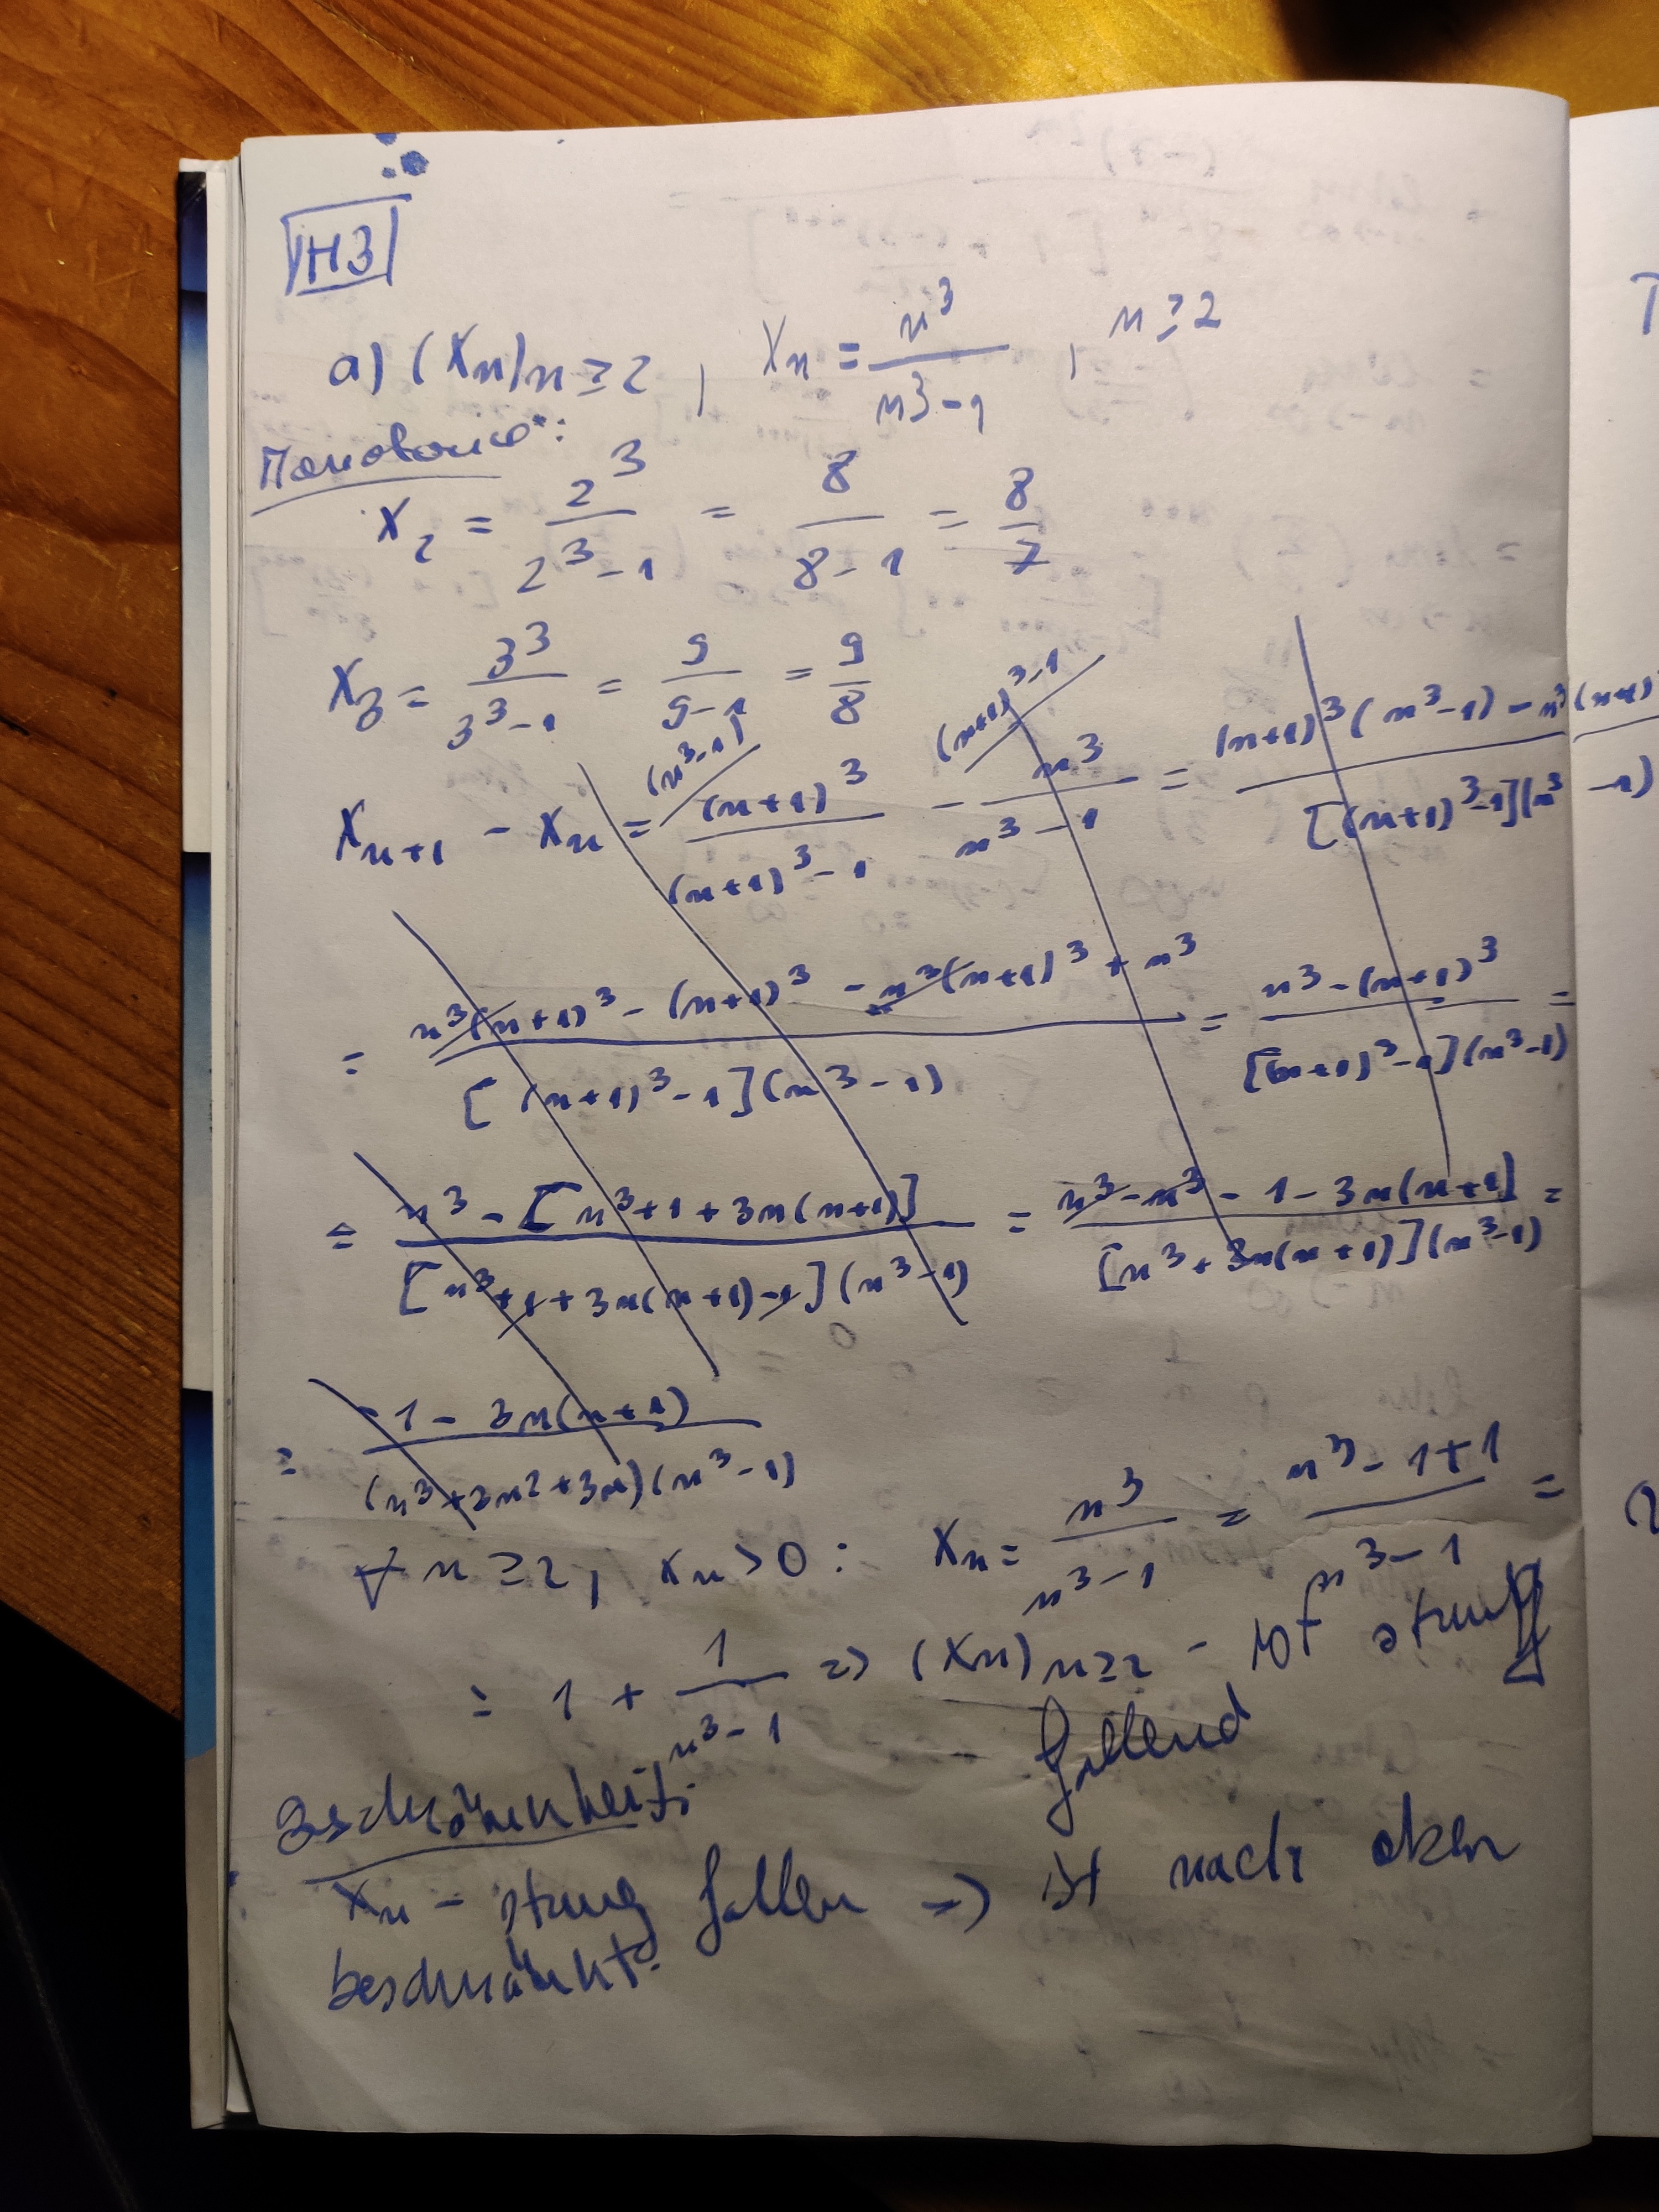 H3
a) (xₙ)ₙ≥2 , xₙ = n³/(n³-1) , n ≥ 2
x₂ = 2³/(2³-1) = 8/(8-1) = 8/7
x₃ = 3³/(3³-1) = 9/(9-1) = 9/8
xₙ₊₁ - xₙ = (n³-1)/ (n+1)³/((n+1)³-1) - (n+1)³-1/ n³/(n³-1) = ((n+1)³(n³-1) - n³(n+1)³)/([(n+1)³-1](n³-1))
= (n³(n+1)³ - (n+1)³ - n³(n+1)³ + n³)/([(n+1)³-1](n³-1)) = (n³-(n+1)³)/([(n+1)³-1](n³-1)) =
= (n³ - [n³+1+3n(n+1)])/([n³+1+3n(n+1)-1](n³-1)) = (n³-n³-1-3n(n+1))/([n³+3n(n+1)](n³-1)) =
= (-1-3n(n+1))/((n³+3n²+3n)(n³-1))
∀ n ≥ 2, xₙ > 0 : xₙ = n³/(n³-1) = (n³-1+1)/(n³-1) =
= 1 + 1/(n³-1) => (xₙ)ₙ≥2 - ist streng
fallend
Beschränkenheit:
xₙ - streng fallen => ist nach oben
beschränkt.